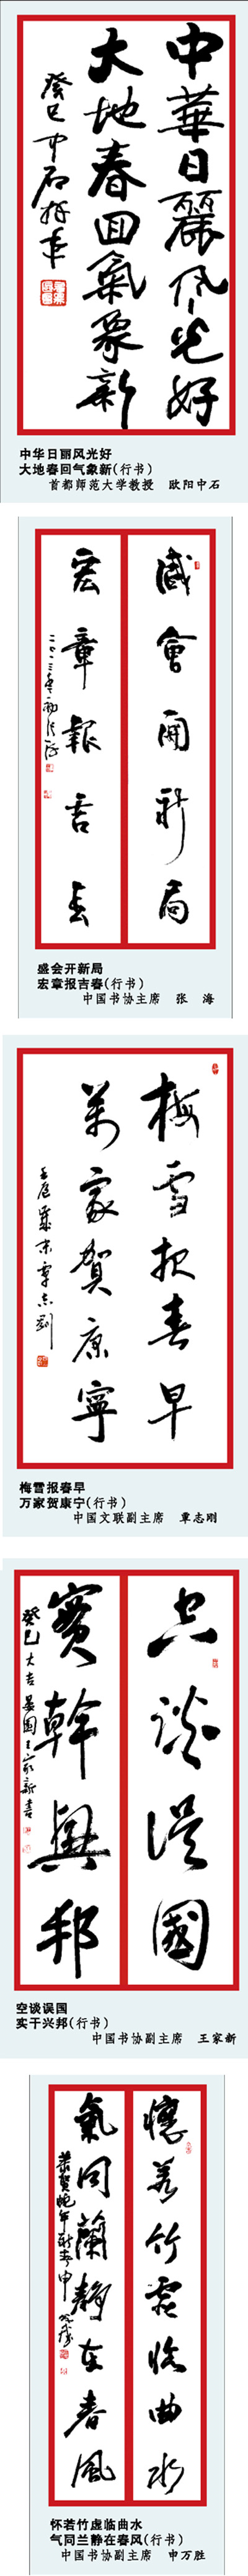 中華日麗风光好
大地春回氣象新
癸巳 中石拜年
中华日丽风光好
大地春回气象新(行书)
首都师范大学教授 欧阳中石
盛會開新局
宏章報吉春
二〇一三年初 张海
盛会开新局
宏章报吉春(行书)
中国书协主席 张 海
梅雪报春早
萬家賀康寧
壬辰歲末覃志刚
梅雪报春早
万家贺康宁(行书)
中国文联副主席 覃志刚
空談误國
實幹興邦
癸巳大吉 王家新書
空谈误国
实干兴邦(行书)
中国书协副主席 王家新
懷若竹虚临曲水
氣同蘭静在春風
恭賀蛇年新春 申万胜
怀若竹虚临曲水
气同兰静在春风(行书)
中国书协副主席 申万胜